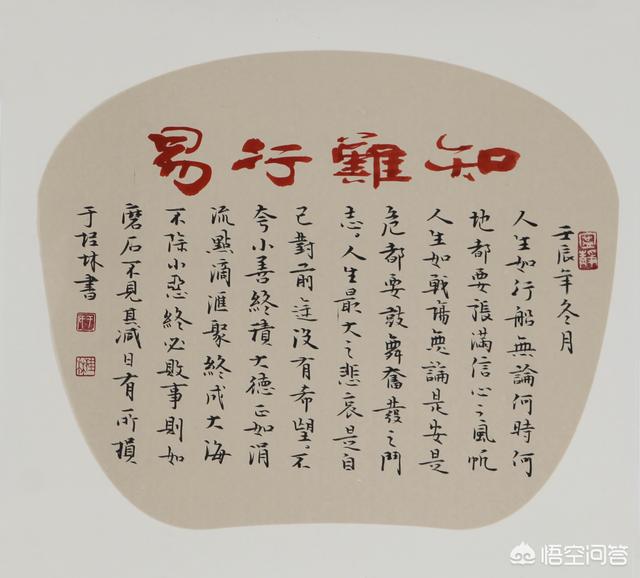 知難行易
壬辰年冬月
人生如行船無論何時何
地都要張滿信心之風帆
人生如戰場無論是安是
危都要鼓舞奮發之鬥
志。人生最大之悲哀是自
己對前途沒有希望。不
夸小善終積大德正如涓
流點滴滙聚終成大海
不除小惡終必敗事則如
磨石不見其減日有所損
于林書
悟空问答